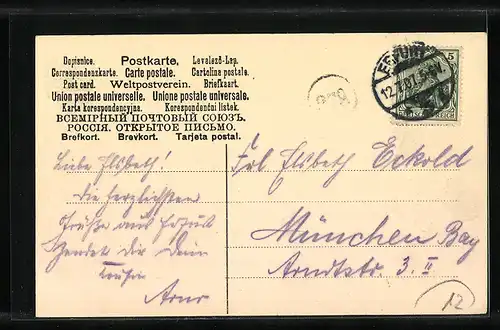 Dopisnice. Postkarte. Levelezö-Lap.
Correspondenzkarte. Carte postale. Cartolina postale.
Post card. Weltpostverein. Briefkaart.
Union postale universelle. Unione postale universale.
Karta korespondencyjna. Korespondenční lístek.
ВСЕМІРНЫЙ ПОЧТОВЫЙ СОЮЗЪ.
РОССІЯ. ОТКРЫТОЕ ПИСЬМО.
Brefkort. Brevkort. Tarjeta postal.
Liebe Elsbeth!
Die herzlichsten
Grüße aus Erfurt
sendet Dir Dein
Cousin
Arno
ERFURT
5
Frl. Elsbeth Eckold
München Bay
Arndtstr. 3. II
12